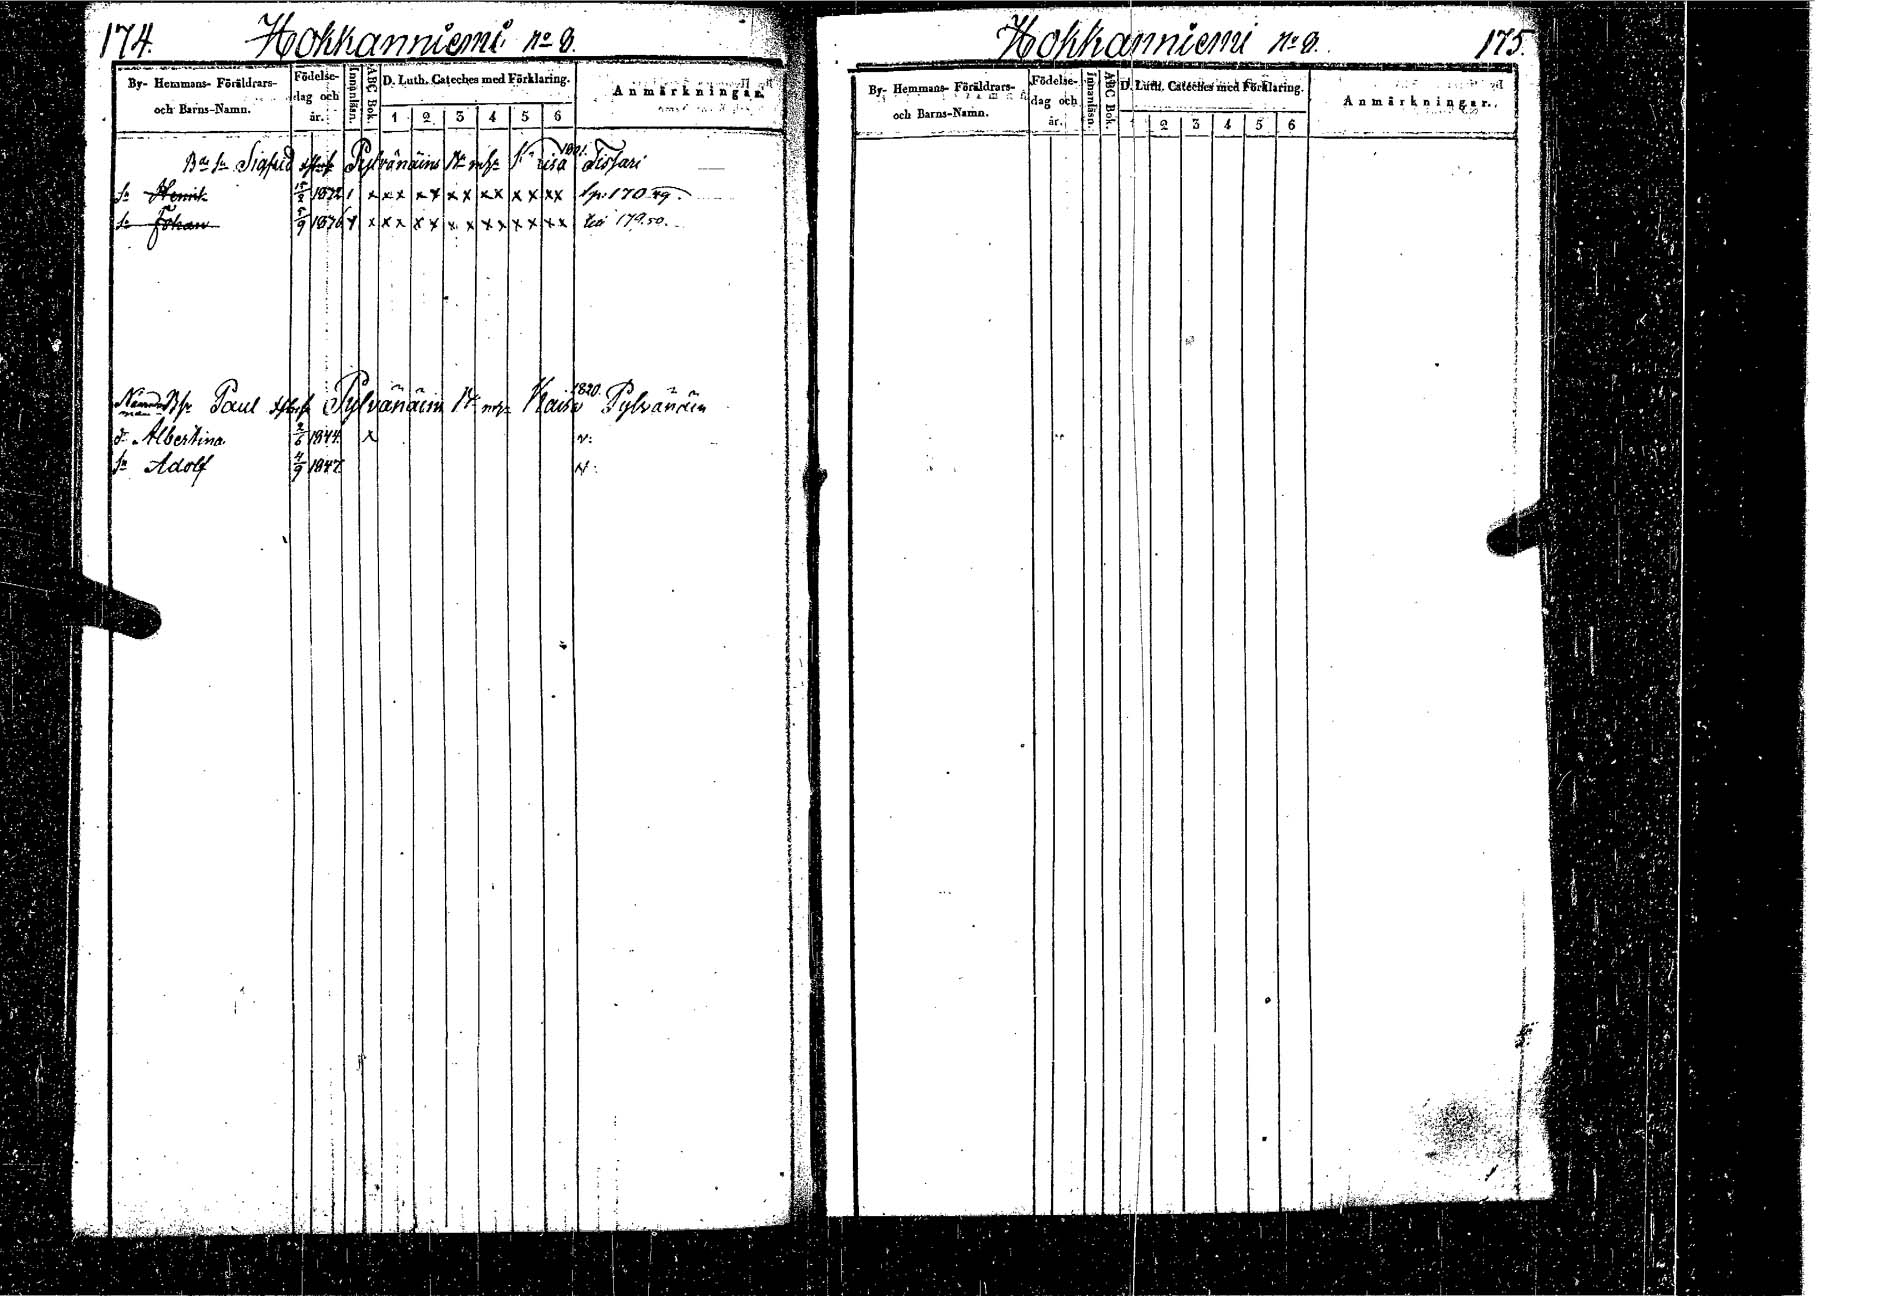 174. Hokkanniemi No 8.
By- Hemmans- Föräldrars- och Barns-Namn.
Födelse- dag och år.
Innanläsn.
ABC Bok.
D. Luth. Cateches med Förklaring.
1 2 3 4 5 6
Anmärkningar.
Sigfrid Pylvänäin 1821. Tissari
Sn Henrik 1832 1 x x x x x x x x x x x x x 170
Sn Johan 5/9 1836 x x x x x x x x x x x x x 179.50.
Paul Pylvänäin Kaisa 1820. Pylvänäin
dr Albertina 2/6 1844. x
Sn Adolf 4/9 1847.
Hokkanniemi No 8. 175.
By- Hemmans- Föräldrars- och Barns-Namn.
Födelse- dag och år.
Innanläsn.
ABC Bok.
D. Luth. Cateches med Förklaring.
1 2 3 4 5 6
Anmärkningar.